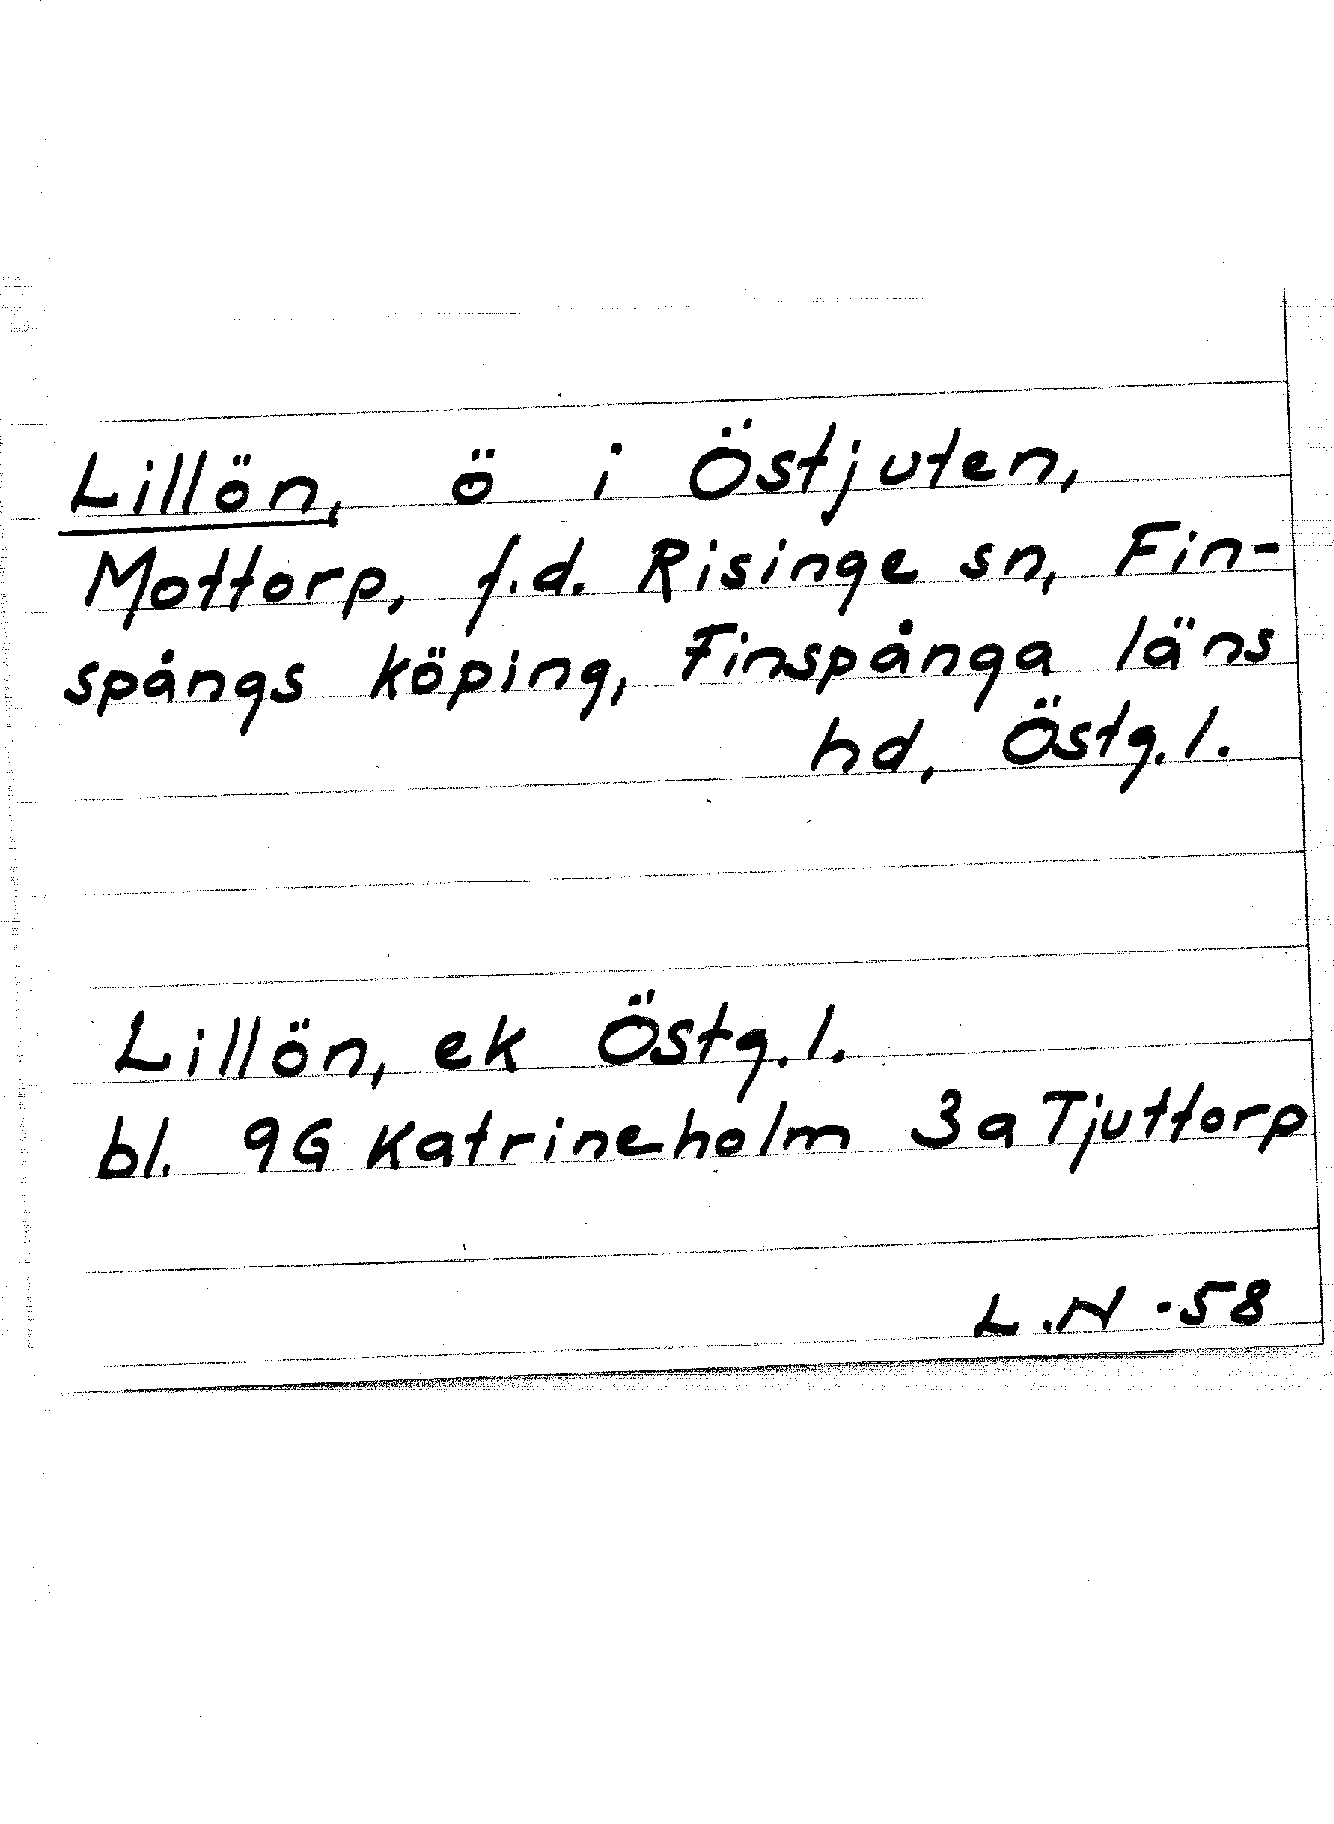 Lillön, ö i Östjuten,
Mottorp, f.d. Risinge sn, Fin-
spångs köping, Finspånga läns
hd, Östg.l.
Lillön, ek Östg.l.
bl. 9G Katrineholm 3a Tjuttorp
L.N -58